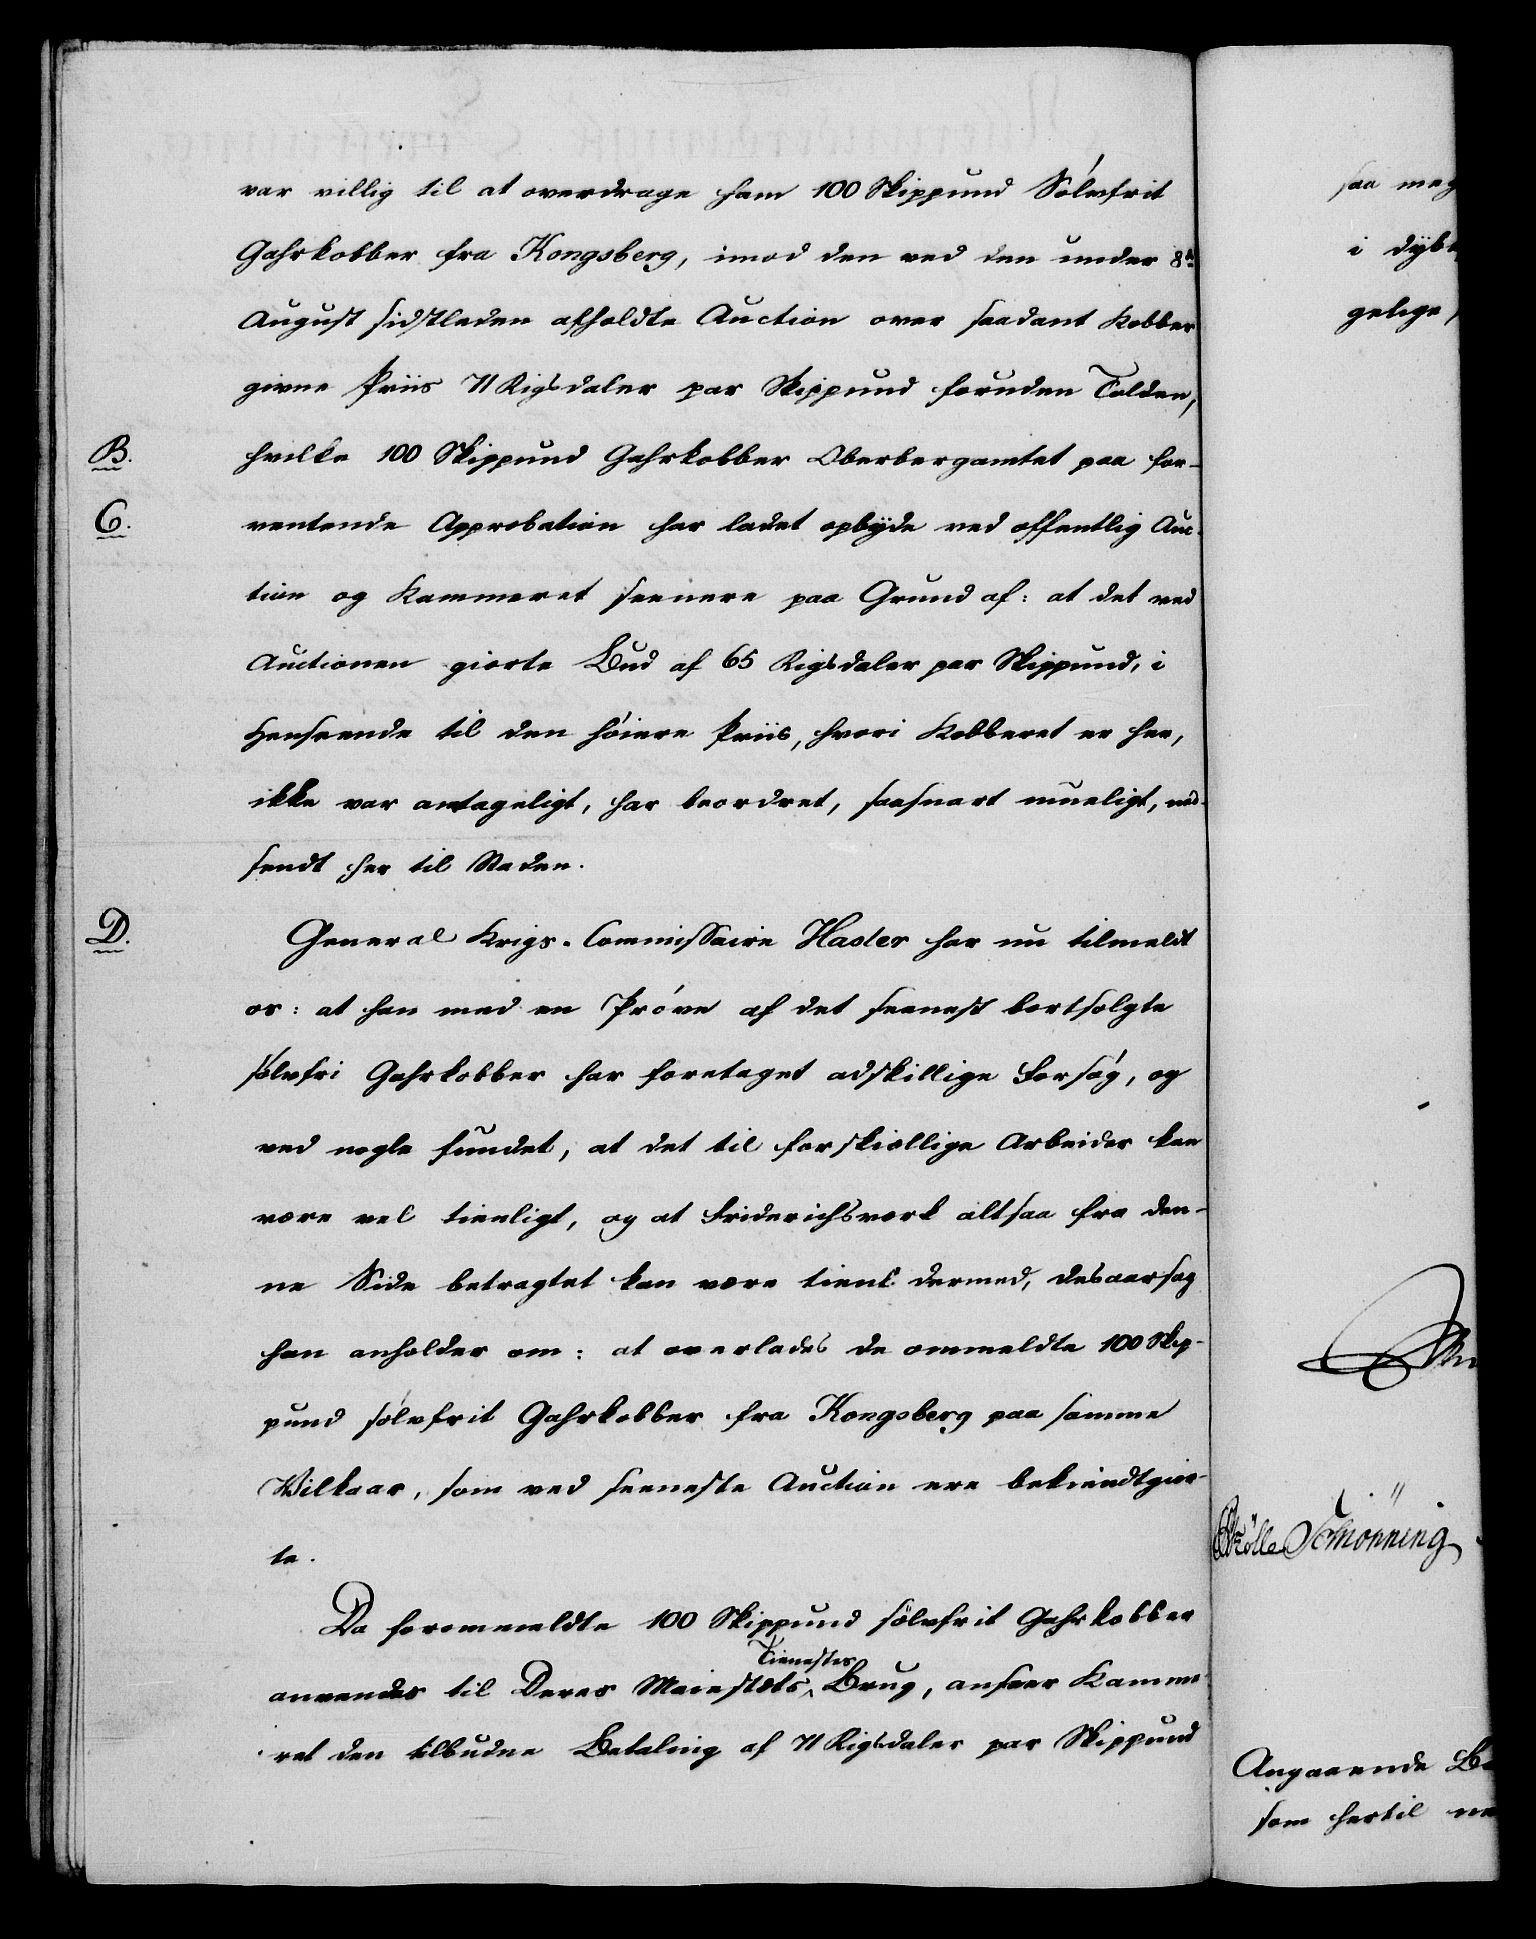 var villig til at overdrage ham 100 Skippund Sølvfrit
Gahrkobber fra Kongsberg, imod den ved den under 8de
August sidstleden afholdte Auction over saadant Kobber
givne Priis 71 Rigsdaler par Skippund foruden Tolden,
B.
hvilke 100 Skippund Gahrkobber Oberbergamtet paa for-
C.
ventende Approbation har ladet opbÿde ved offentlig Auc-
tion og Kammeret seenere paa Grund af: at det ved
Auctionen giorte Bud af 65 Rigsdaler par Skippund, i
Henseende til den høiere Priis, hvori Kobberet er her,
ikke var antageligt, har beordret, saasnart mueligt, ned-
sendt her til Staden.
D.
General Krigs-Commissaire Hasler har nu tilmeldt
os: at han med en Prøve af det seenest bortsolgte
sølvfri Gahrkobber har foretaget adskillige Forsøg, og
ved nogle fundet, at det til forskiællige Arbeider kan
være vel tienligt, og at Friderichsværk altsaa fra den-
ne Side betragtet kan være tient dermed, desaarsag
han anholder om: at overlades de ommeldte 100 Skip-
pund sølvfrit Gahrkobber fra Kongsberg paa samme
Vilkaar, som ved seeneste Auction ere bekiendtgior-
te.
Da forommeldte 100 Skippund sølvfrit Gahrkobber
Tienestes
anvendes til Deres Maiestæts Brug, anseer Kamme-
ret den tilbudne Betaling af 71 Rigsdaler par Skippund
saa meg
i dÿbe
gelige
Schiönning
Angaaende
som hertil